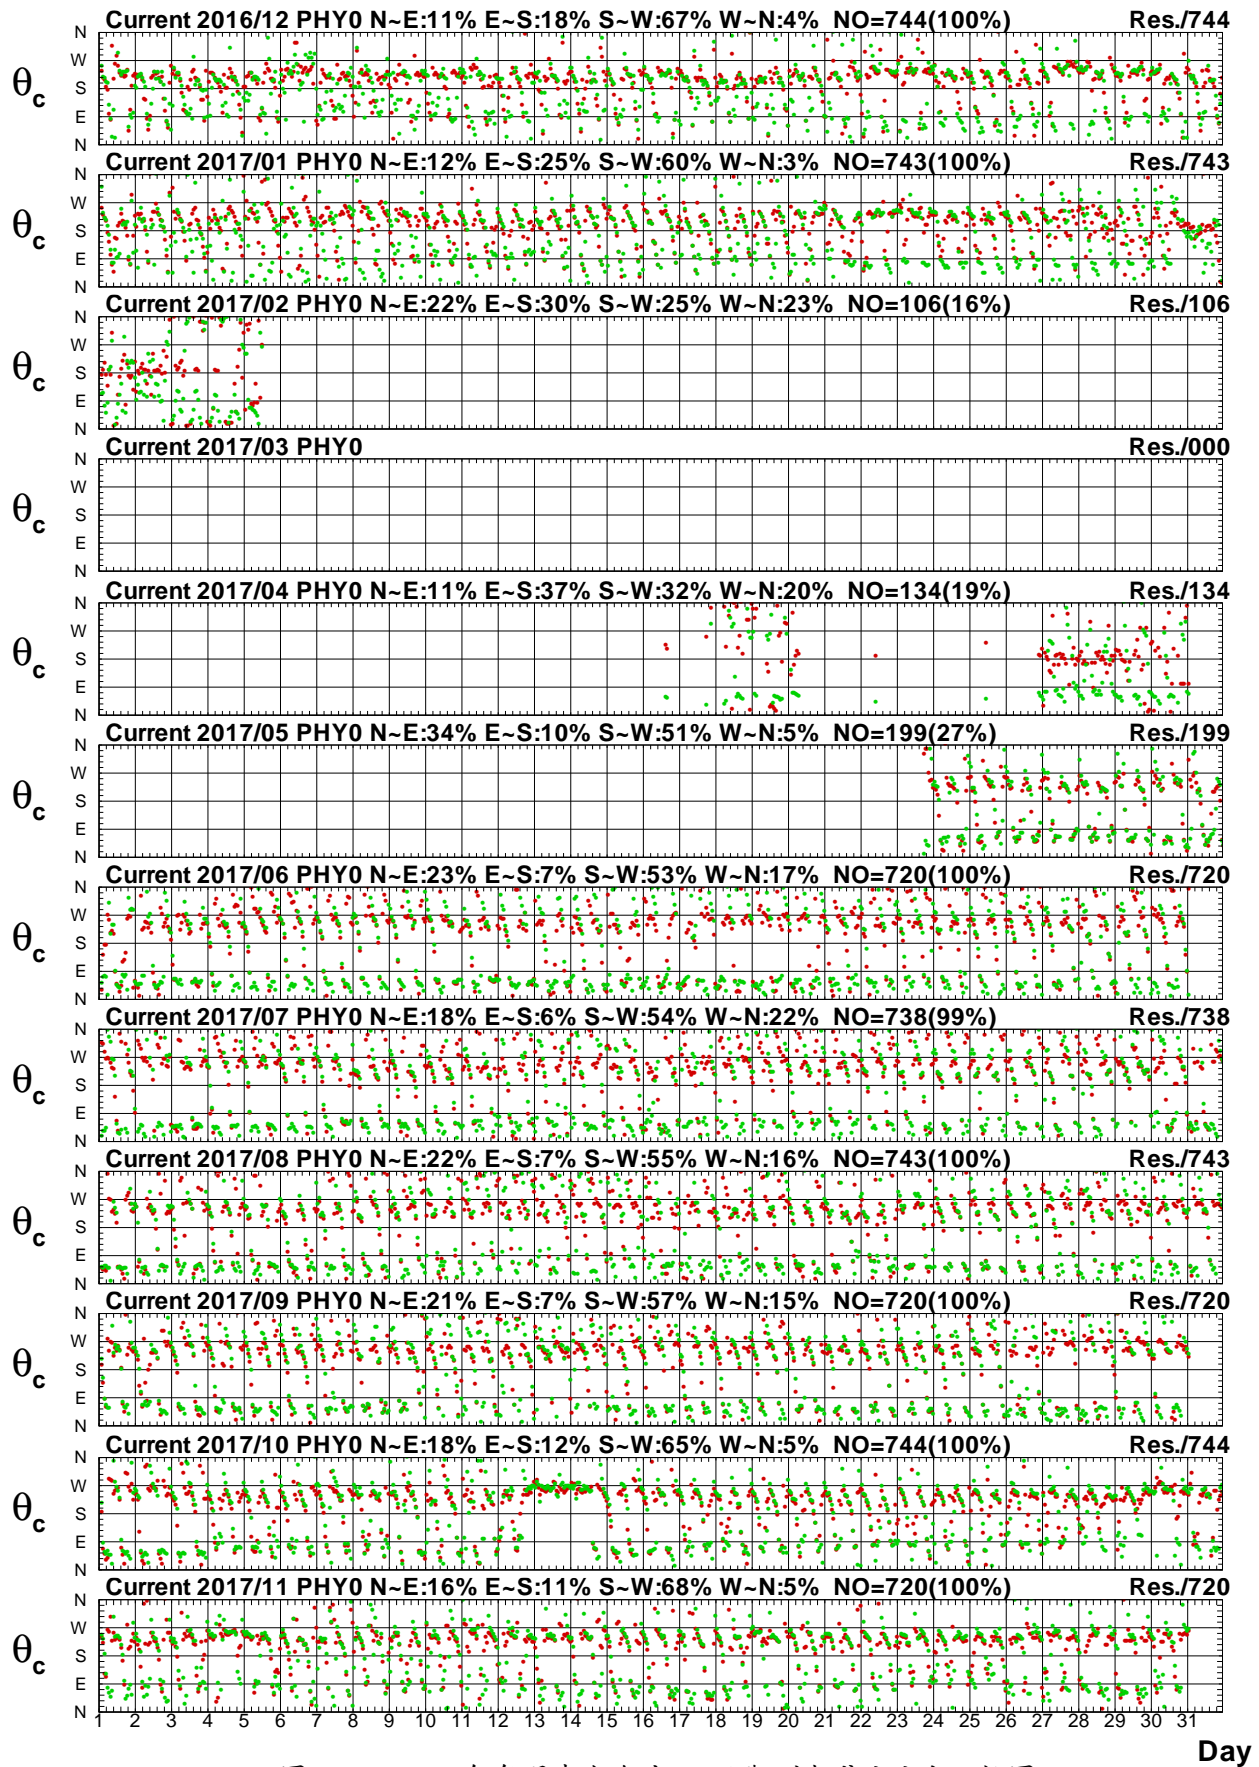 Current 2016/12 PHY0 N~E:11% E~S:18% S~W:67% W~N:4% NO=744(100%) Res./744
N
W
θc S
E
N
Current 2017/01 PHY0 N~E:12% E~S:25% S~W:60% W~N:3% NO=743(100%) Res./743
N
W
θc S
E
N
Current 2017/02 PHY0 N~E:22% E~S:30% S~W:25% W~N:23% NO=106(16%) Res./106
N
W
θc S
E
N
Current 2017/03 PHY0 Res./000
N
W
θc S
E
N
Current 2017/04 PHY0 N~E:11% E~S:37% S~W:32% W~N:20% NO=134(19%) Res./134
N
W
θc S
E
N
Current 2017/05 PHY0 N~E:34% E~S:10% S~W:51% W~N:5% NO=199(27%) Res./199
N
W
θc S
E
N
Current 2017/06 PHY0 N~E:23% E~S:7% S~W:53% W~N:17% NO=720(100%) Res./720
N
W
θc S
E
N
Current 2017/07 PHY0 N~E:18% E~S:6% S~W:54% W~N:22% NO=738(99%) Res./738
N
W
θc S
E
N
Current 2017/08 PHY0 N~E:22% E~S:7% S~W:55% W~N:16% NO=743(100%) Res./743
N
W
θc S
E
N
Current 2017/09 PHY0 N~E:21% E~S:7% S~W:57% W~N:15% NO=720(100%) Res./720
N
W
θc S
E
N
Current 2017/10 PHY0 N~E:18% E~S:12% S~W:65% W~N:5% NO=744(100%) Res./744
N
W
θc S
E
N
Current 2017/11 PHY0 N~E:16% E~S:11% S~W:68% W~N:5% NO=720(100%) Res./720
N
W
θc S
E
N
1 2 3 4 5 6 7 8 9 10 11 12 13 14 15 16 17 18 19 20 21 22 23 24 25 26 27 28 29 30 31
Day